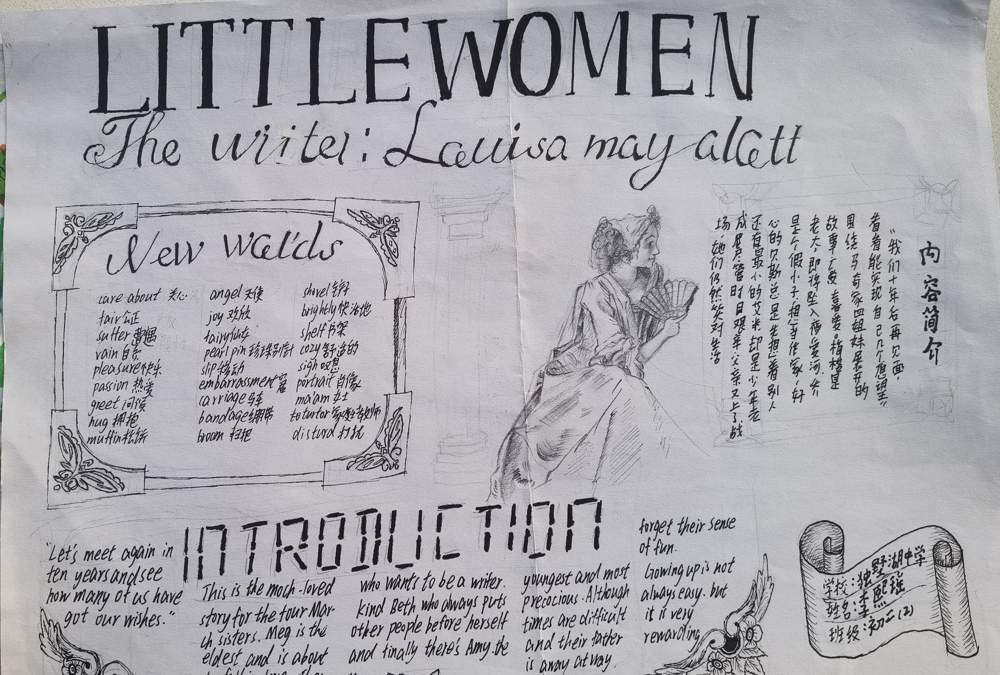 LITTLEWOMEN
The writer: Louisa may alcott
New Wards
care about 关心
fair 公正
suffer 遭遇
vain 自负
pleasure 快乐
passion 热爱
greet 问候
hug 拥抱
muffin 松饼
angel 天使
joy 欢欣
fairyland
pearl pin 珍珠别针
slip 滑动
embarrassment 窘
carriage 马车
bandage 绷带
broom 扫把
shovel 铲子
brightly 快活地
shelf 书架
cozy 舒适的
sigh 叹息
portrait 肖像
ma'am 女士
to tutor 家庭教师
disturd 打扰
内容简介
“我们十年后再见面,
看看能实现自己几个愿望”
围绕马奇家四姐妹展开的
故事广受喜爱,梅格是
老大,即将坠入爱河,乔
是个假小子,想当作家,好
心的贝斯总是先想着别人
还有最小的艾米却是少年老
成,尽管时日艰辛,父亲又上了战
场,她们仍然笑对生活
INTRODUCTION
"Let's meet again in
ten years and see
how many of us have
got our wishes."
This is the moch-loved
story for the four Mar-
ch sisters. Meg is the
eldest and is about
who wants to be a writer.
kind Beth who always puts
other people before herself
and finally there's Amy the
youngest and most
precocious. Although
times are difficult
and their father
is away at way.
forget their sense
of fun.
Gowing up is not
always easy. but
it is very
rewarding
学校:独野湖中学
姓名:李熙瑶
班级:初二(2)